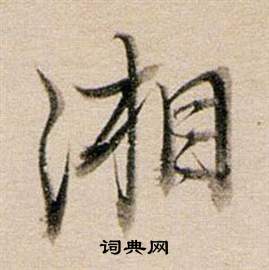 湘
词典网